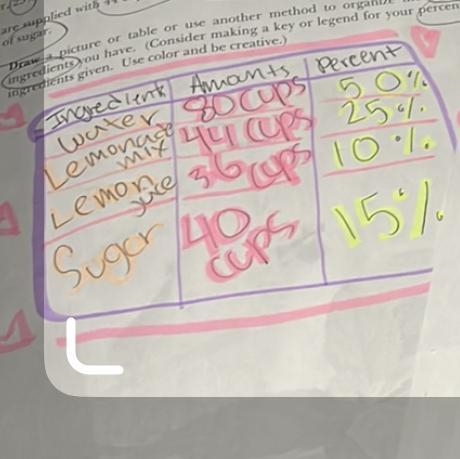 are supplied with 44
of sugar.
Draw a picture or table or use another method to organize
ingredients you have. (Consider making a key or legend for your percen
ingredients given. Use color and be creative.)
Ingredients Amounts Percent
Water 80 cups 50%
Lemonade mix 44 cups 25%
Lemon juice 36 cups 10%
Sugar 40 cups 15%